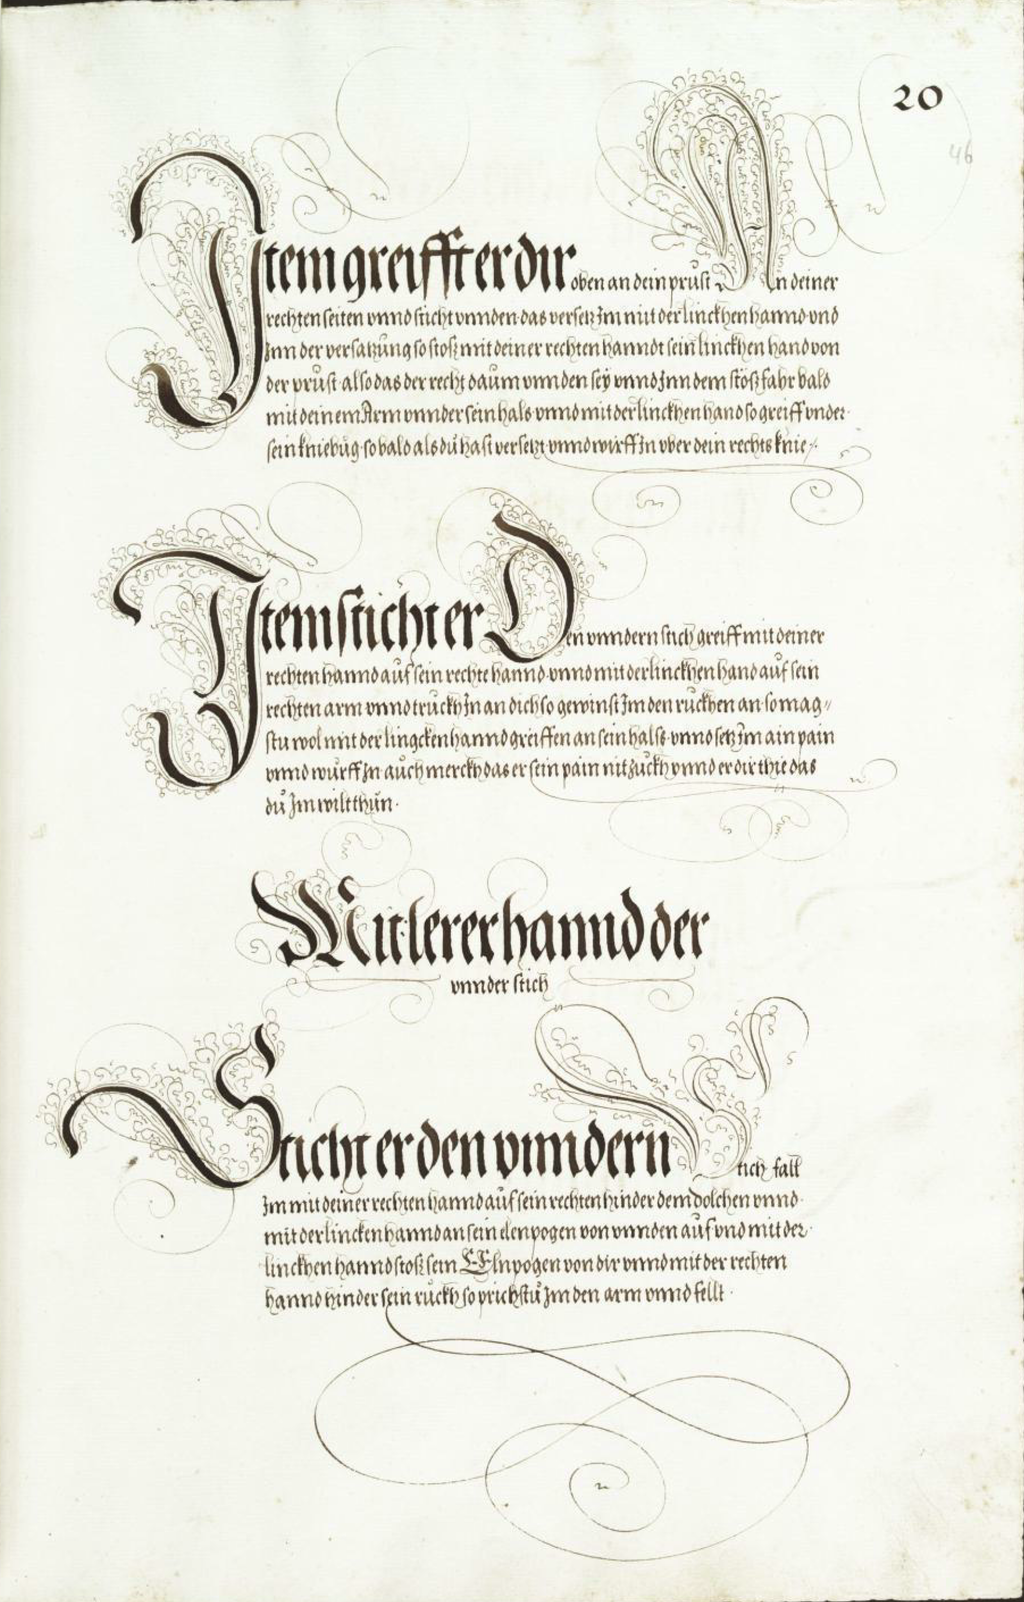 20
46
Item greifft er dir oben an dein prust An deiner
rechten seiten vnnd sticht vnnden das versetz Im mit der linckhen hannd vnd
Inn der versatzung so stosz mit deiner rechten hanndt sein linckhen hand von
der prust also das der recht daum vnnden seÿ vnnd Inn dem stosz fahr bald
mit deinem Arm vnnder sein hals vnnd mit der linckhen hand so greiff vnder
sein kniebug so bald als dŭ hast versetzt vnnd wirff In vber dein rechts knie
Item sticht er Den vnndern stich greiff mit deiner
rechten hannd auf sein rechte hannd vnnd mit der linckhen hand auf sein
rechten arm vnnd truckh In an dich so gewinst Im den ruckhen an so mag-
stu wol mit der lingcken hannd greiffen an sein halss vnnd setz Im ain pain
vnnd wŭrff In auch merckh das er sein pain nit zuckh vnnd er dir thie das
dŭ Im wilt thŭn
Mitlerer hannd der
vnnder stich
Sticht er den vnndern Stich fall
Im mit deiner rechten hannd auf sein rechten hinder dem dolchen vnnd
mit der lincken hannd an sein elenpogen von vnnden auf vnd mit der
linckhen hannd stosz sein Elnpogen von dir vnnd mit der rechten
hannd hinder sein rŭckh so prichstŭ Im den arm vnnd fellt